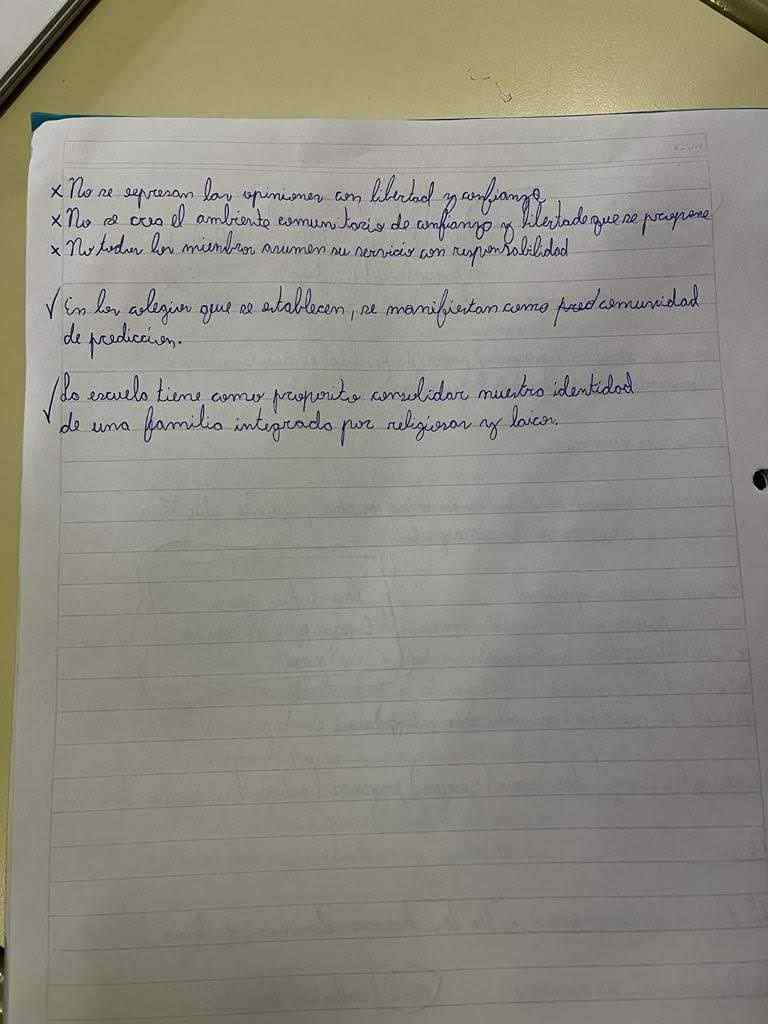 x No se expresan las opiniones con libertad y confianza
x No se crea el ambiente comunitario de confianza y libertad que se propone
x No todos los miembros asumen su servicio con responsabilidad
√ En los colegios que se establecen, se manifiestan como pred comunidad
de predicción.
√ La escuela tiene como proposito consolidar nuestra identidad
de una familia integrada por religiosas y laicos.